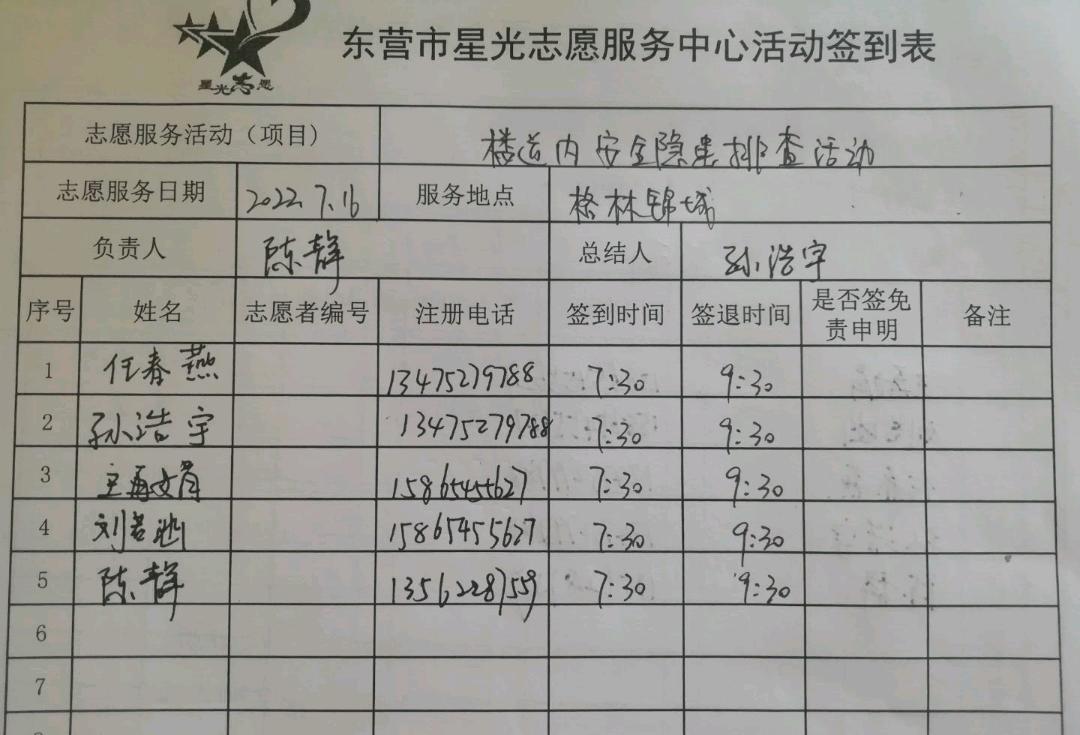 星光志愿
东营市星光志愿服务中心活动签到表
志愿服务活动（项目） 楼道内安全隐患排查活动
志愿服务日期 2022.7.16 服务地点 格林锦城
负责人 陈静 总结人 孙浩宇
序号 姓名 志愿者编号 注册电话 签到时间 签退时间 是否签免责申明 备注
1 任春燕 13475279788 7:30 9:30
2 孙浩宇 13475279788 7:30 9:30
3 15865455627 7:30 9:30
4 刘 15865455627 7:30 9:30
5 陈静 13562287559 7:30 9:30
6
7